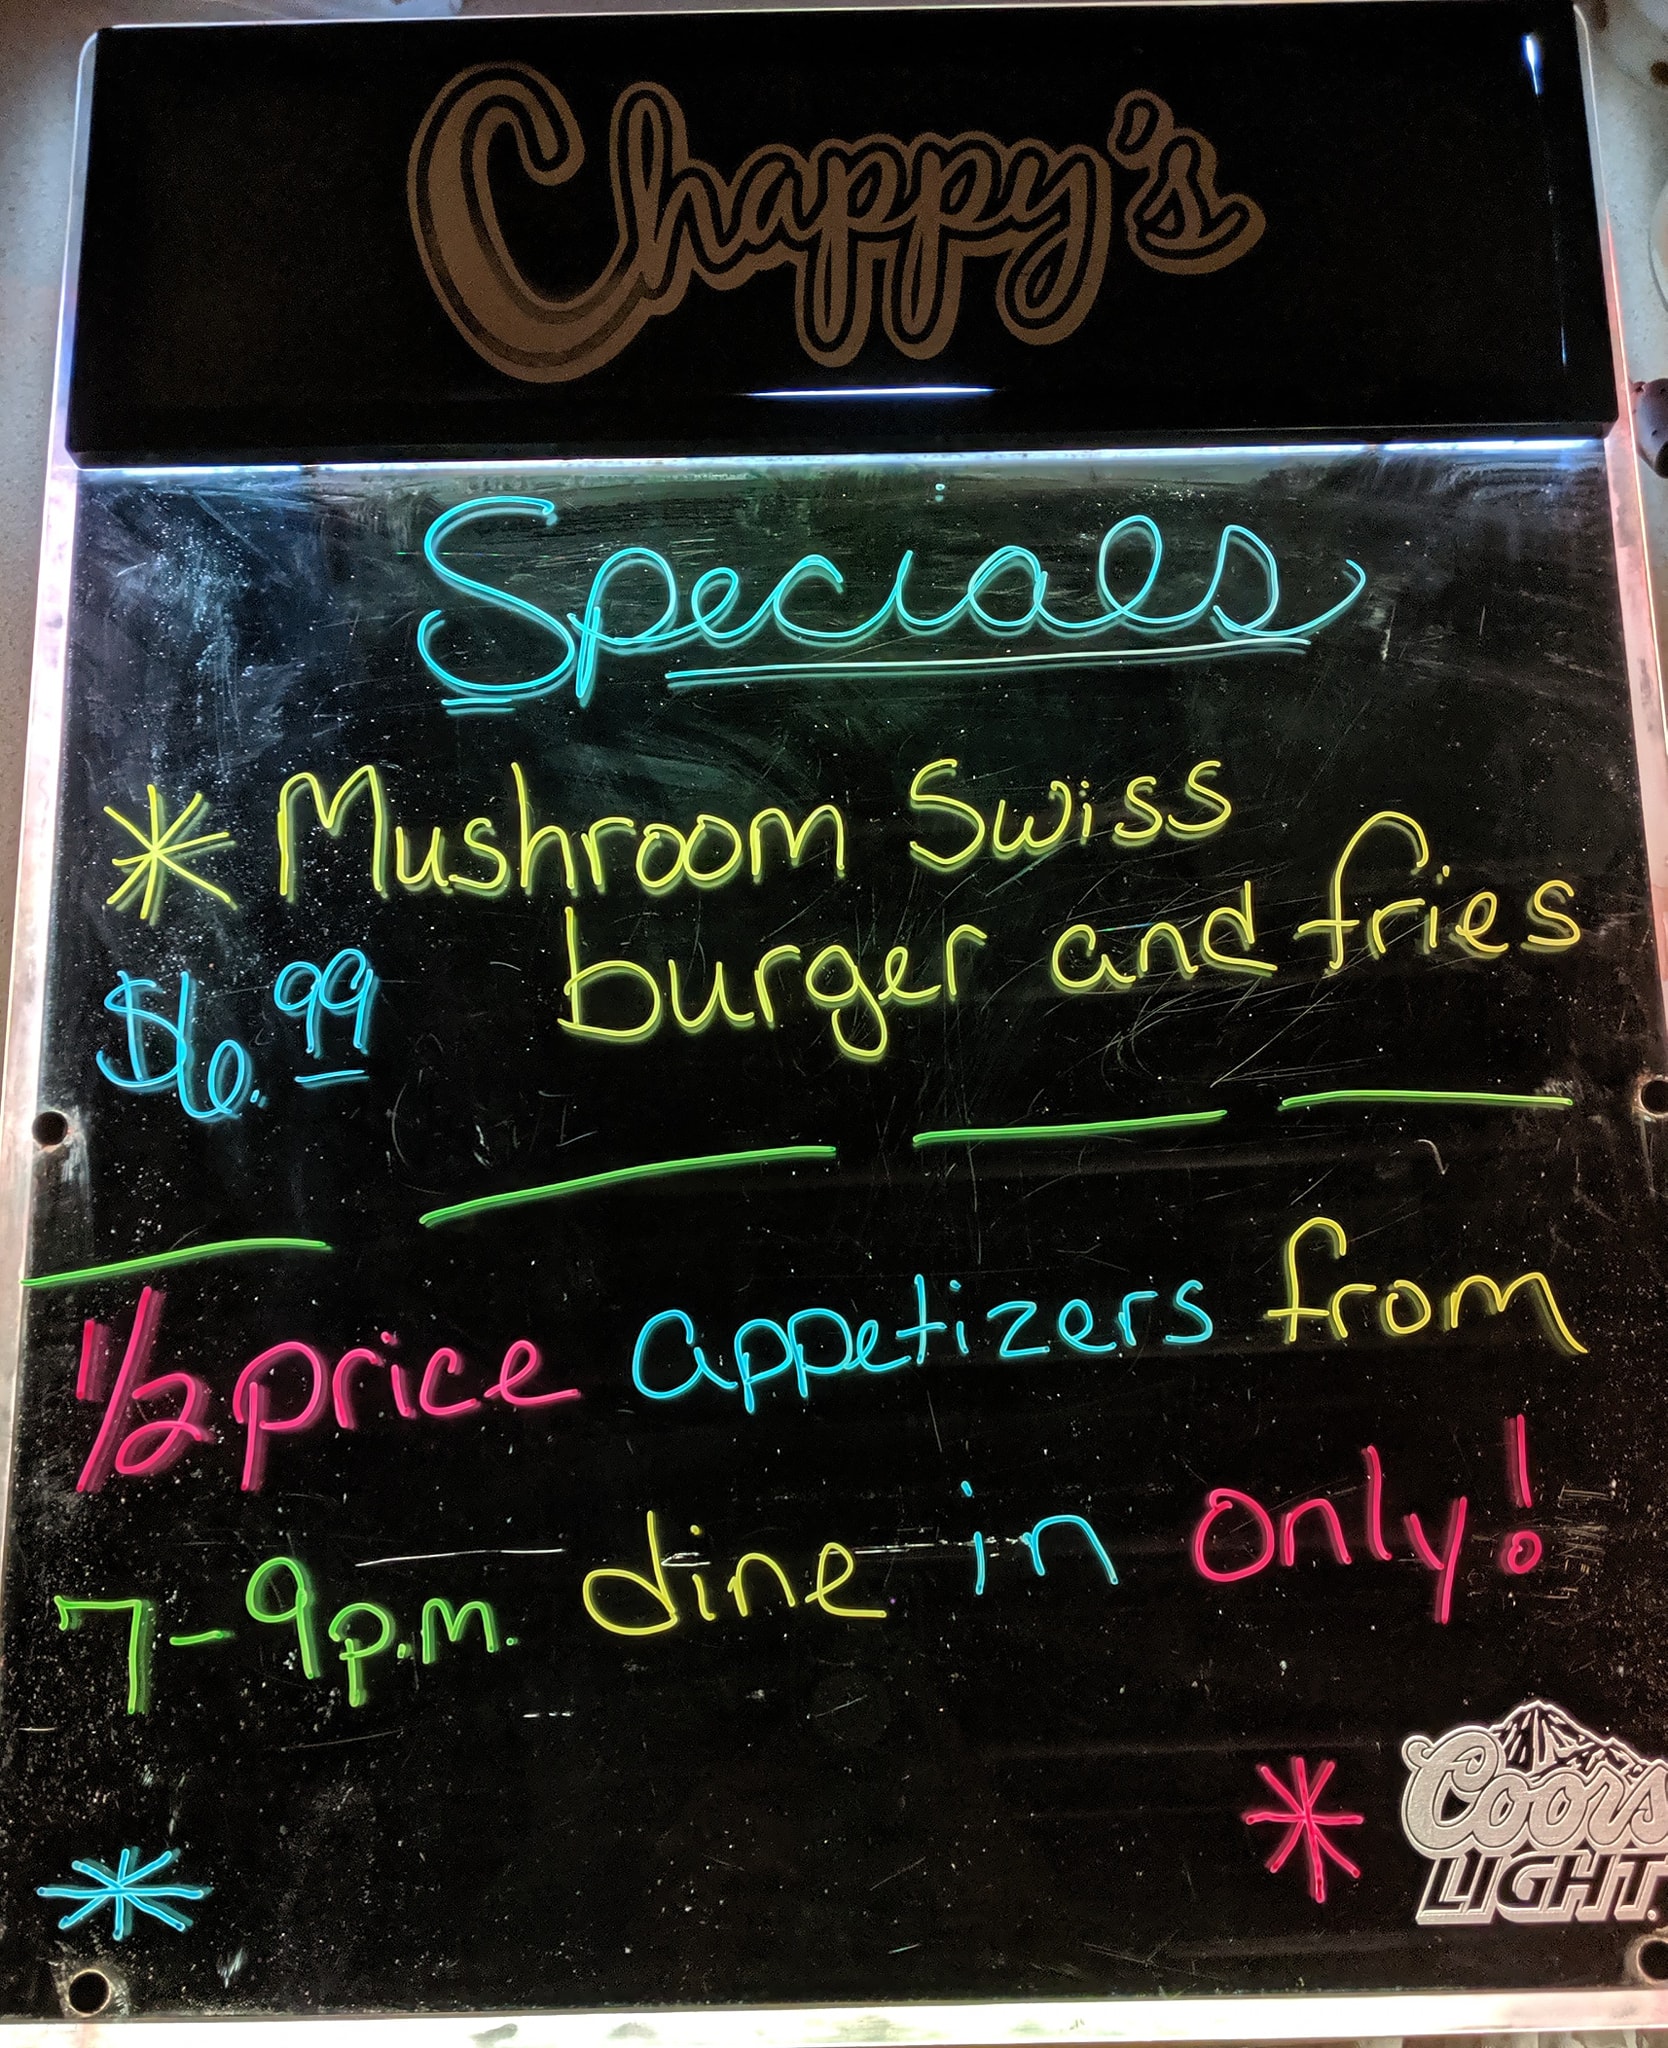 Chappy's
Specials
* Mushroom Swiss
burger and fries
$6.99
1/2 price appetizers from
7-9p.m. dine in only!
Coors
LIGHT